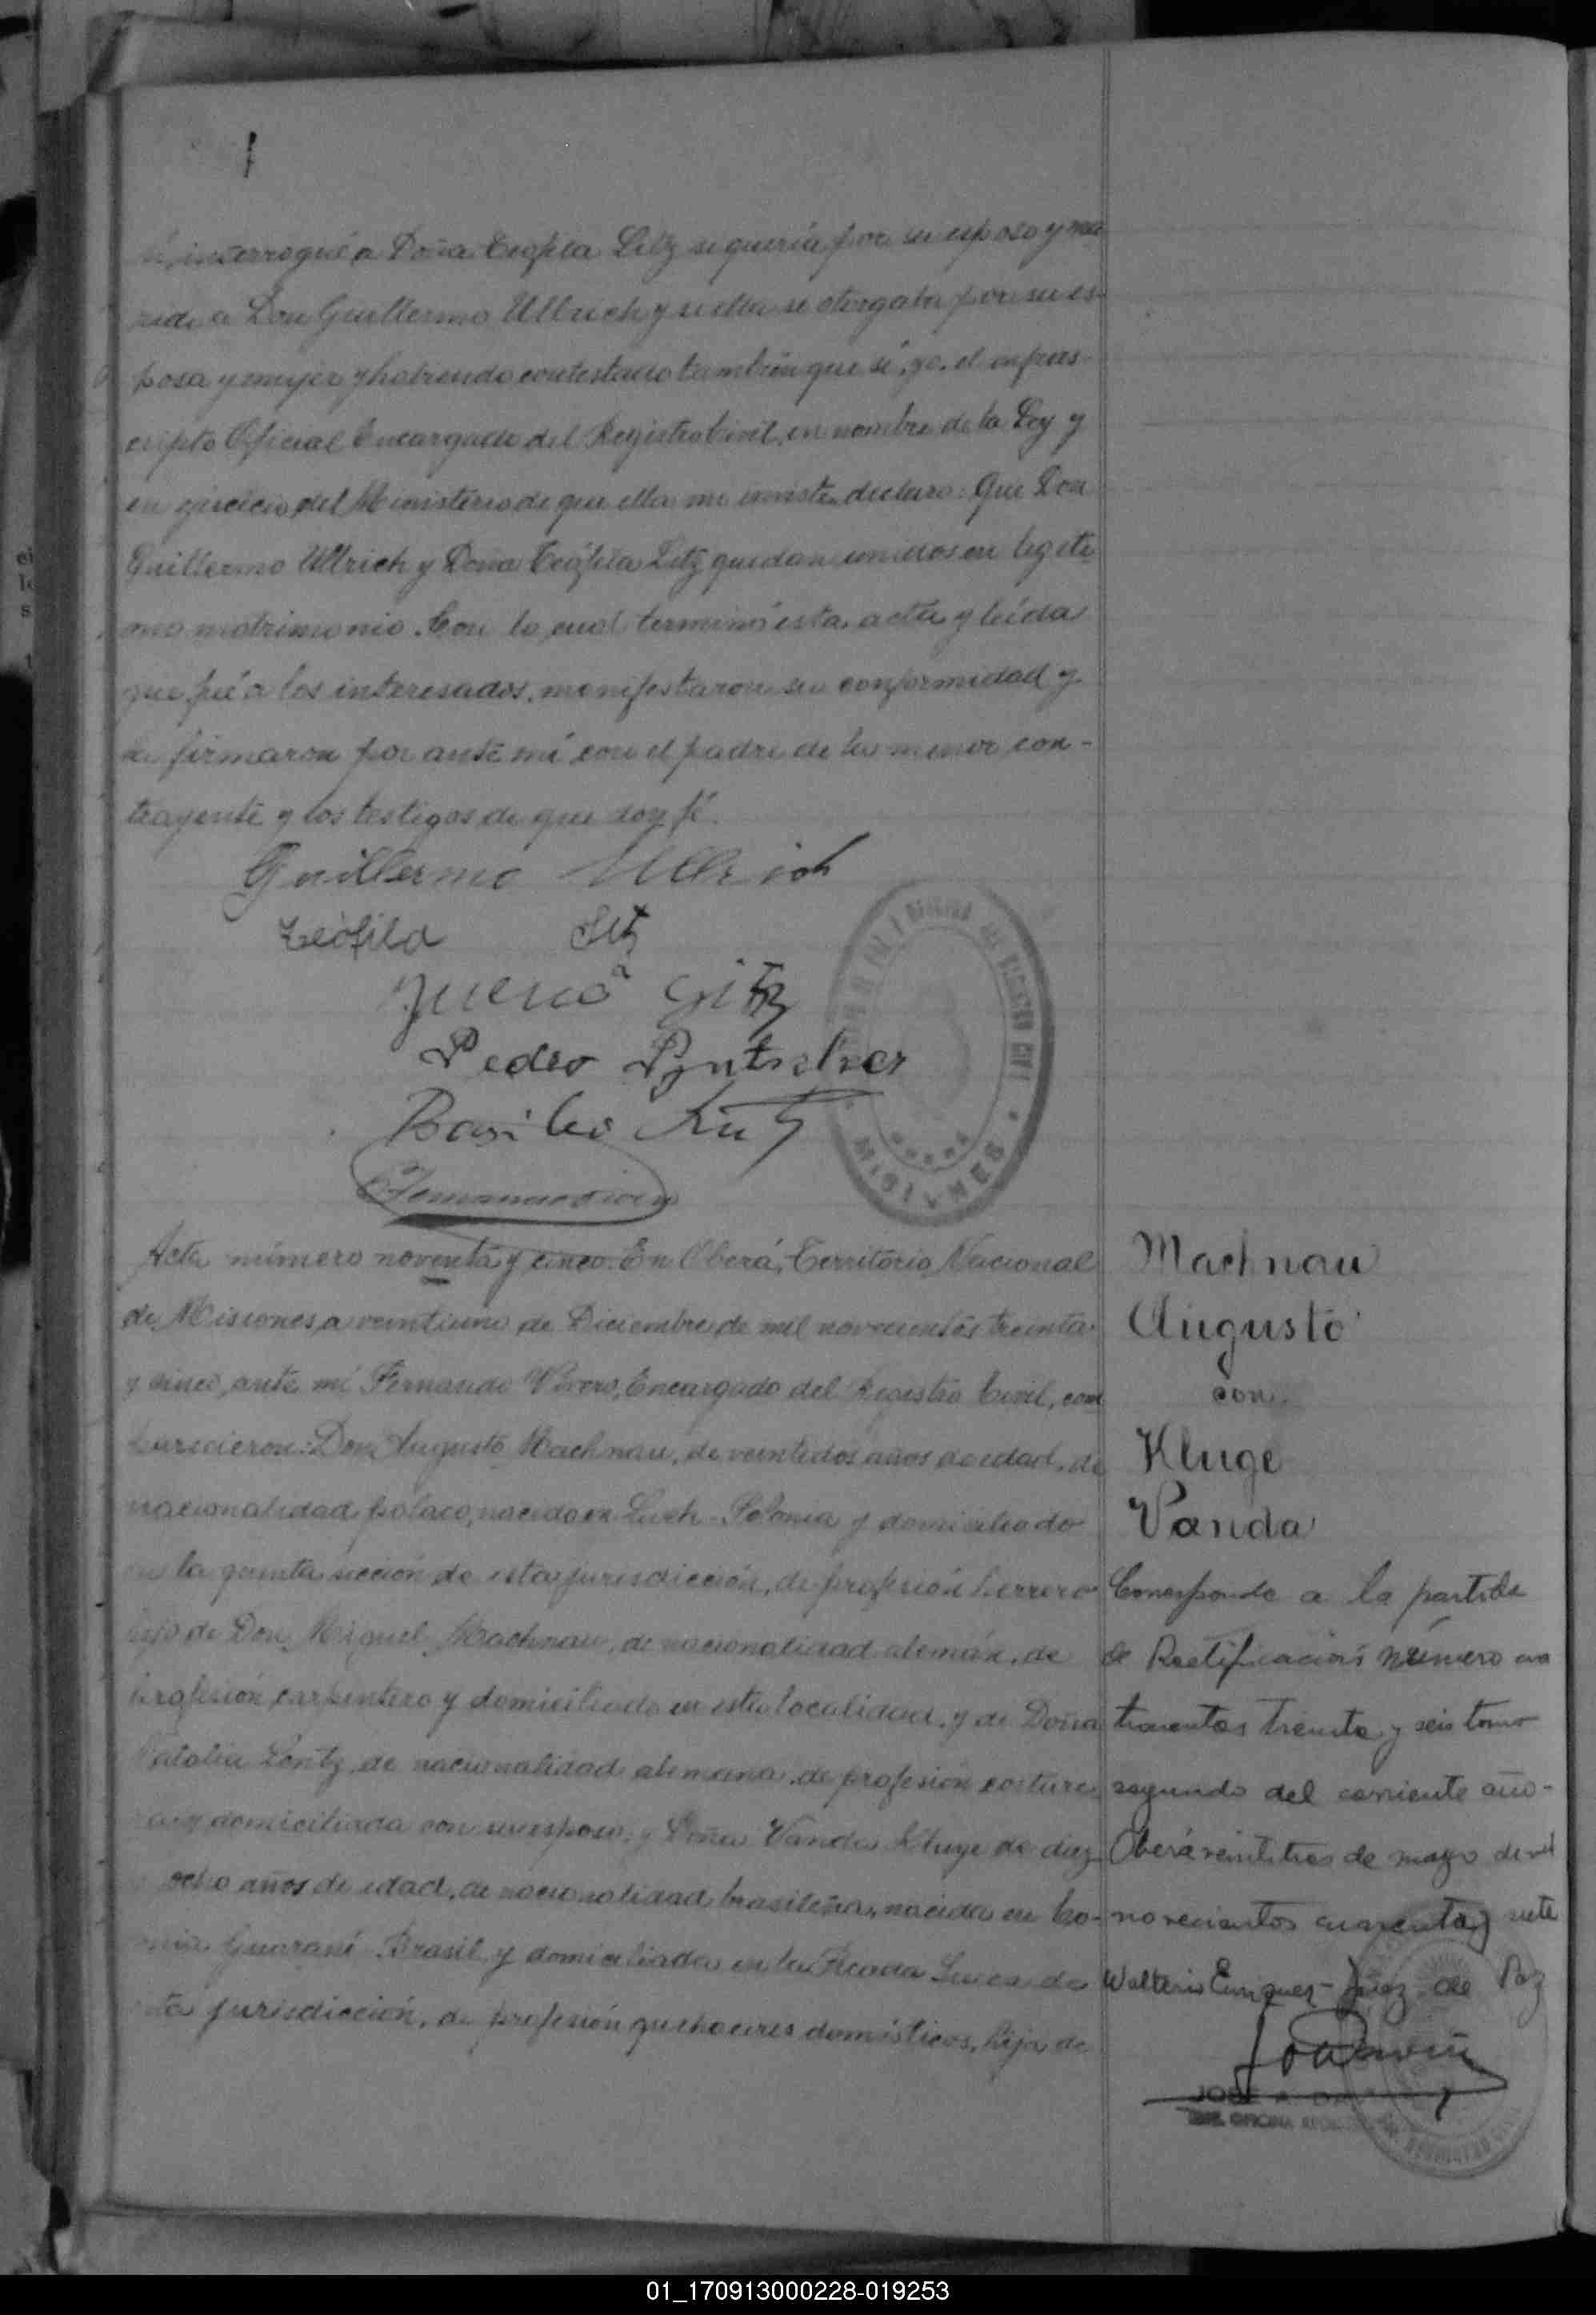 interrogué a Doña Teófila Litz si quería por su esposo y ma
rido a Don Guillermo Ullrich y si ella se otorgaba por su es-
posa y mujer y habiendo contestado también que sí, yo, el infras-
cripto Oficial Encargado del Registro Civil, en nombre de la Ley y
en ejercicio del Ministerio de que ella me inviste declaro: Que Don
Guillermo Ullrich y Doña Teófila Litz quedan unidos en legíti
mo matrimonio. Con lo cual terminó esta acta y leída
que fué a los interesados, manifestaron su conformidad y
la firmaron por ante mí con el padre de la menor con-
trayente y los testigos de que doy fé.
Guillermo Ullrich
Teófila
Pedro
Basilio
Acta número noventa y cinco. En Oberá, Territorio Nacional
de Misiones, a veintiuno de Diciembre de mil novecientos treinta
y cinco, ante mí Fernando Vivero, Encargado del Registro Civil, com
parecieron: Don Augusto Machnau, de veintidos años de edad, de
nacionalidad polaco, nacido en Luck - Polonia y domiciliado
en la quinta sección de esta jurisdicción, de profesión herrero
hijo de Don Miguel Machnau, de nacionalidad alemán, de
profesión carpintero y domiciliado en esta localidad, y de Doña
Natalia Lentz, de nacionalidad alemana, de profesión costure
ra y domiciliada con su esposo, y Doña Vanda Kluge de diez
ocho años de edad, de nacionalidad brasileña, nacida en Co-
lonia Guaraní Brasil y domiciliada en la Picada Sueca de
esta jurisdicción, de profesión quehaceres domésticos, hija de
Machnau
Augusto
con
Kluge
Vanda
Corresponde a la partida
de Rectificación número cua
trocientos treinta y seis tomo
segundo del corriente año-
Oberá veintitres de mayo de mil
novecientos cuarenta y siete
Walterio Enriquez - Juez de Paz
JOSE A.
OFICINA
MISIONES
REGISTRO CIVIL
01_170913000228-019253